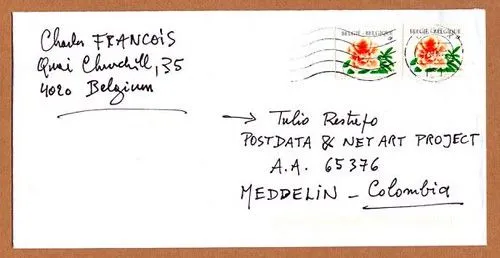 Charles FRANCOIS
Quai Churchill, 35
4020 Belgium
BELGIE-BELGIQUE
BELGIE-BELGIQUE
→ Tulio Restrepo
POSTDATA & NET ART PROJECT
A.A. 65376
MEDDELIN - Colombia